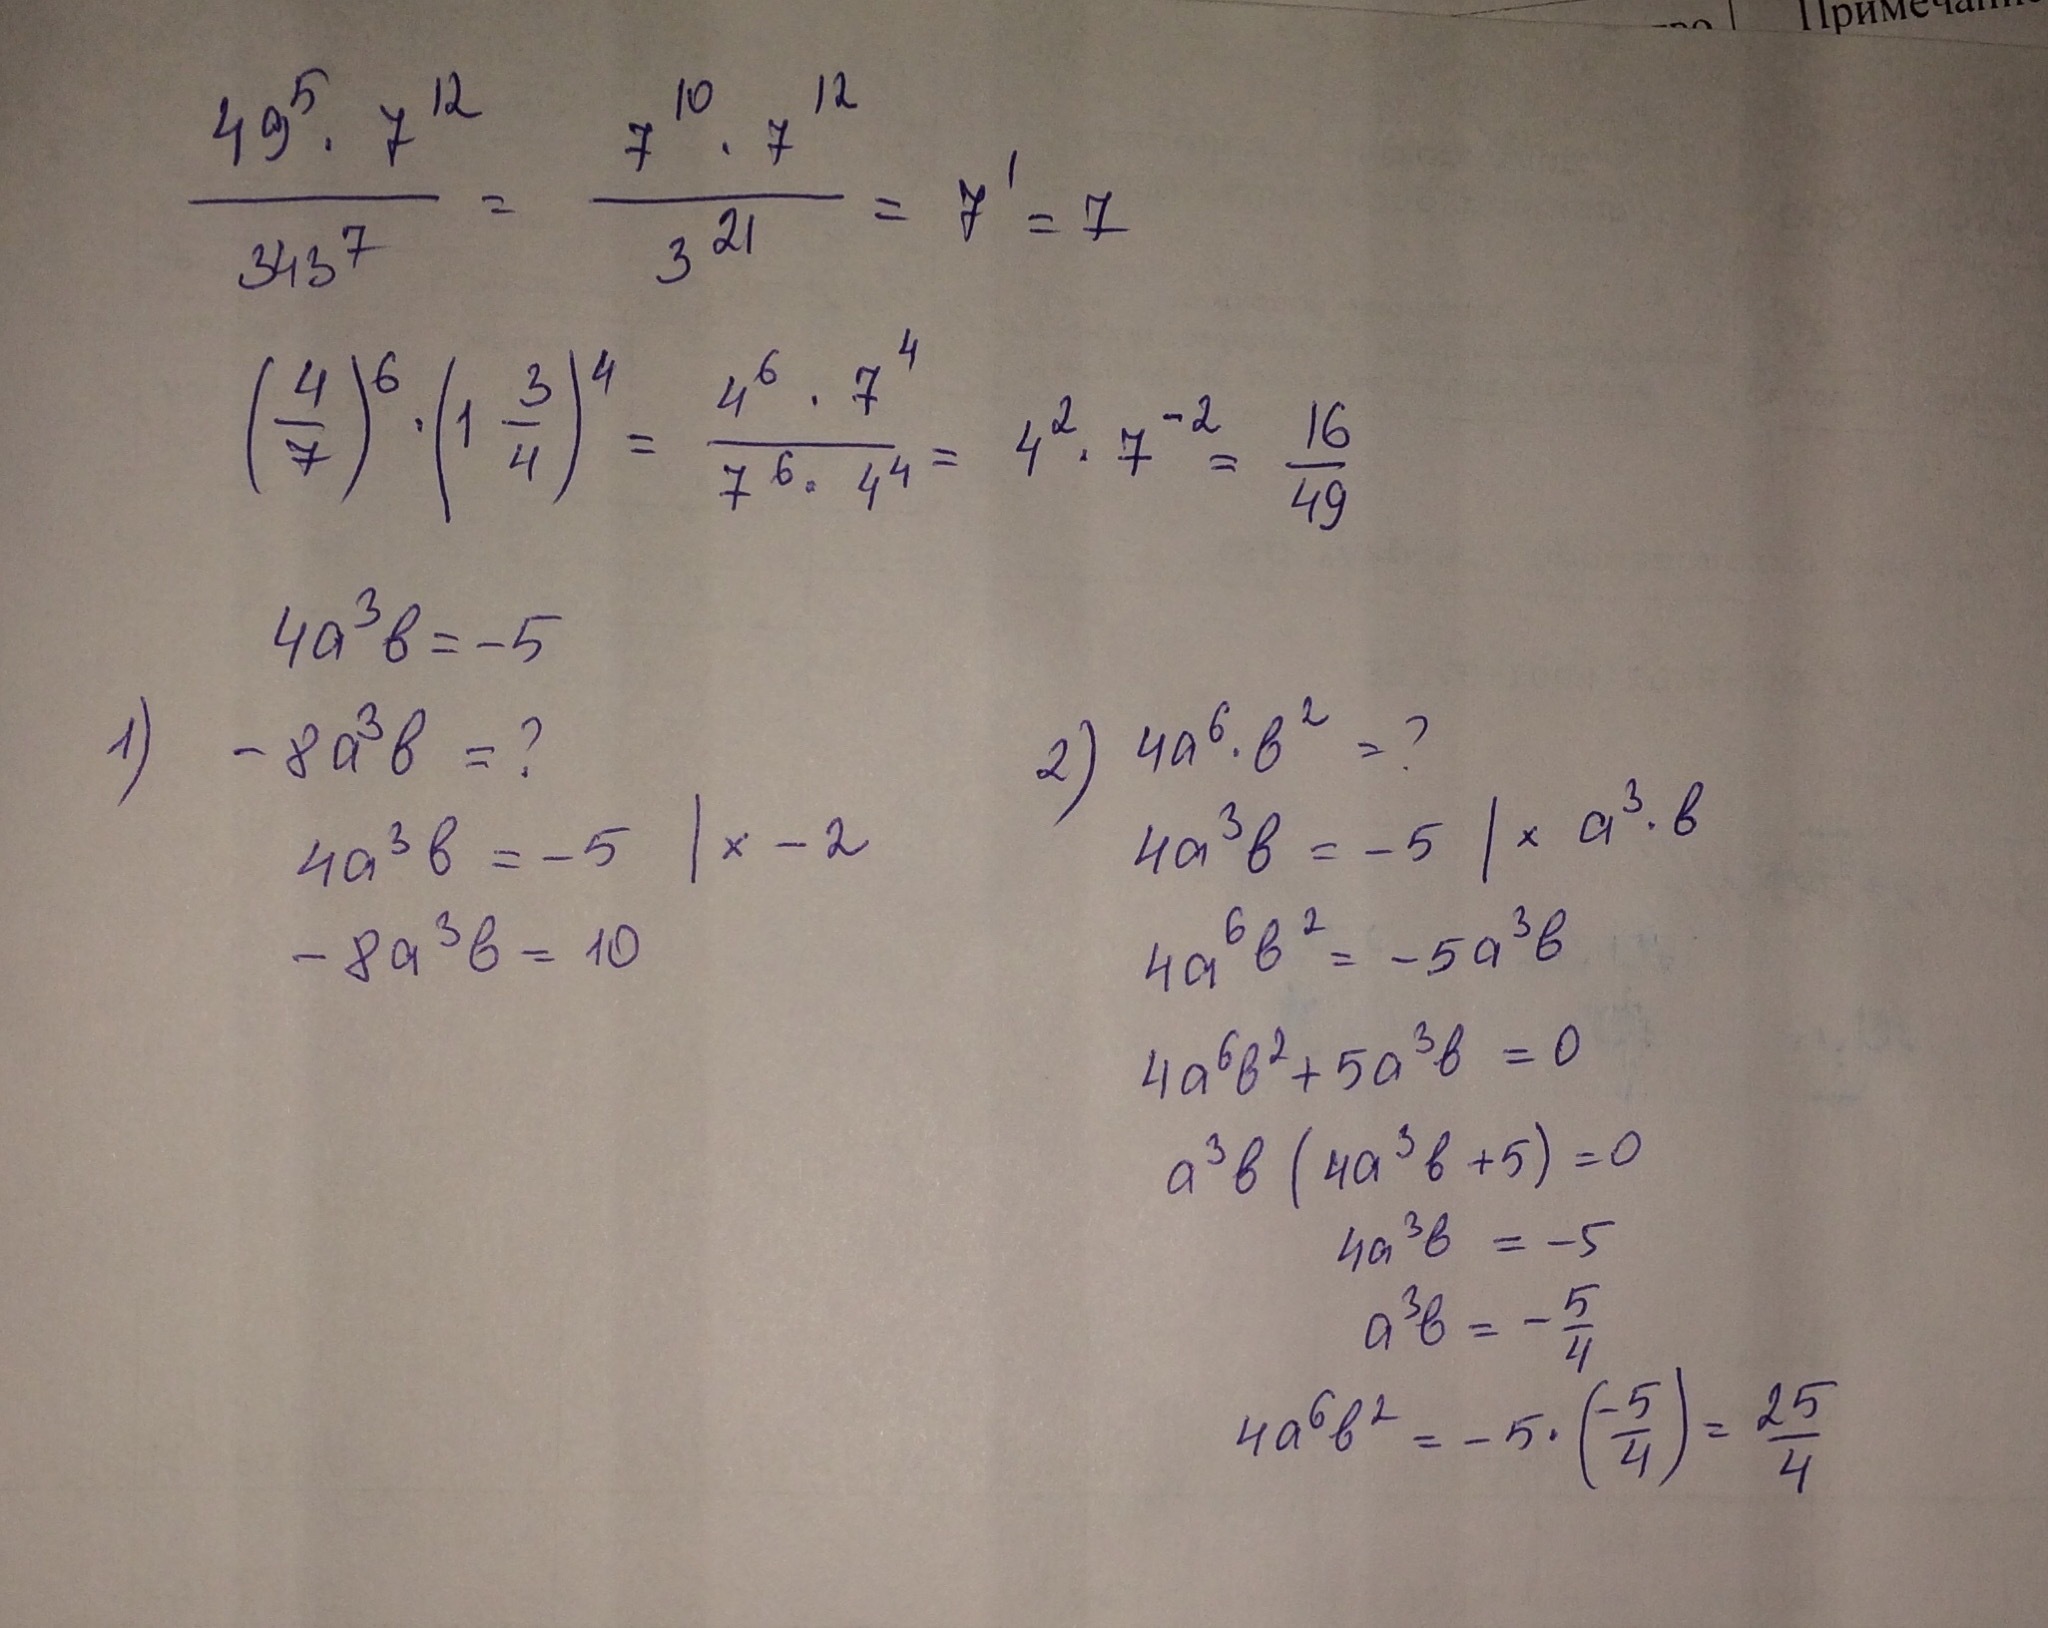 Примечание
49⁵ · 7¹² / 343⁷ = 7¹⁰ · 7¹² / 3²¹ = 7¹ = 7
(4/7)⁶ · (1 3/4)⁴ = 4⁶ · 7⁴ / 7⁶ · 4⁴ = 4² · 7⁻² = 16/49
4a³b = -5
1) -8a³b = ?
4a³b = -5 | × -2
-8a³b = 10
2) 4a⁶ · b² = ?
4a³b = -5 | × a³ · b
4a⁶b² = -5a³b
4a⁶b² + 5a³b = 0
a³b (4a³b + 5) = 0
4a³b = -5
a³b = - 5/4
4a⁶b² = -5 · (-5/4) = 25/4